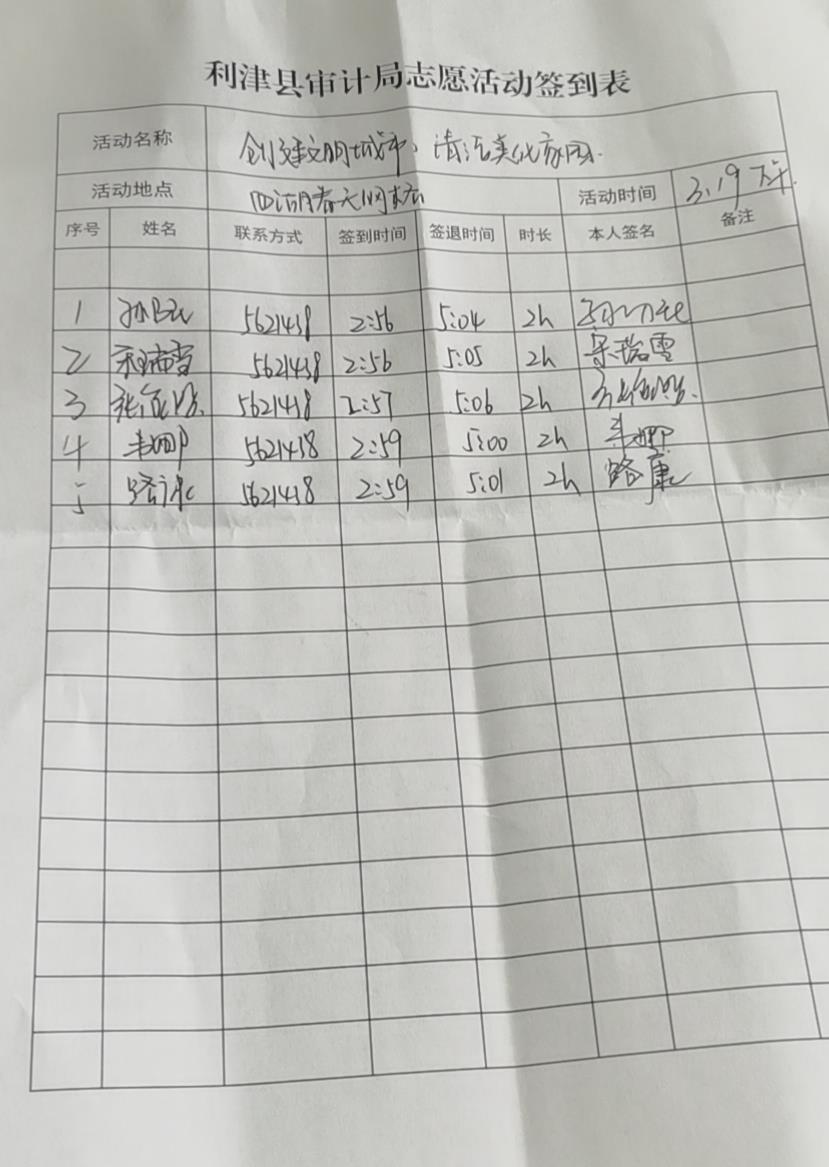 利津县审计局志愿活动签到表
活动名称 创建文明城市、清洁美化家园.
活动地点 活动时间 3.19 下午.
序号 姓名 联系方式 签到时间 签退时间 时长 本人签名 备注
1 5621438 2:56 5:04 2h
2 5621438 2:56 5:05 2h 梁瑞雪
3 5621438 2:57 5:06 2h
4 5621438 2:59 5:00 2h
5 5621438 2:59 5:01 2h 路康